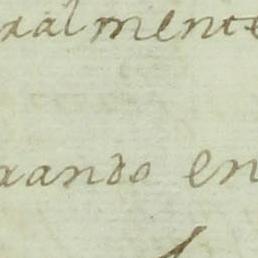 ralmente
xando en